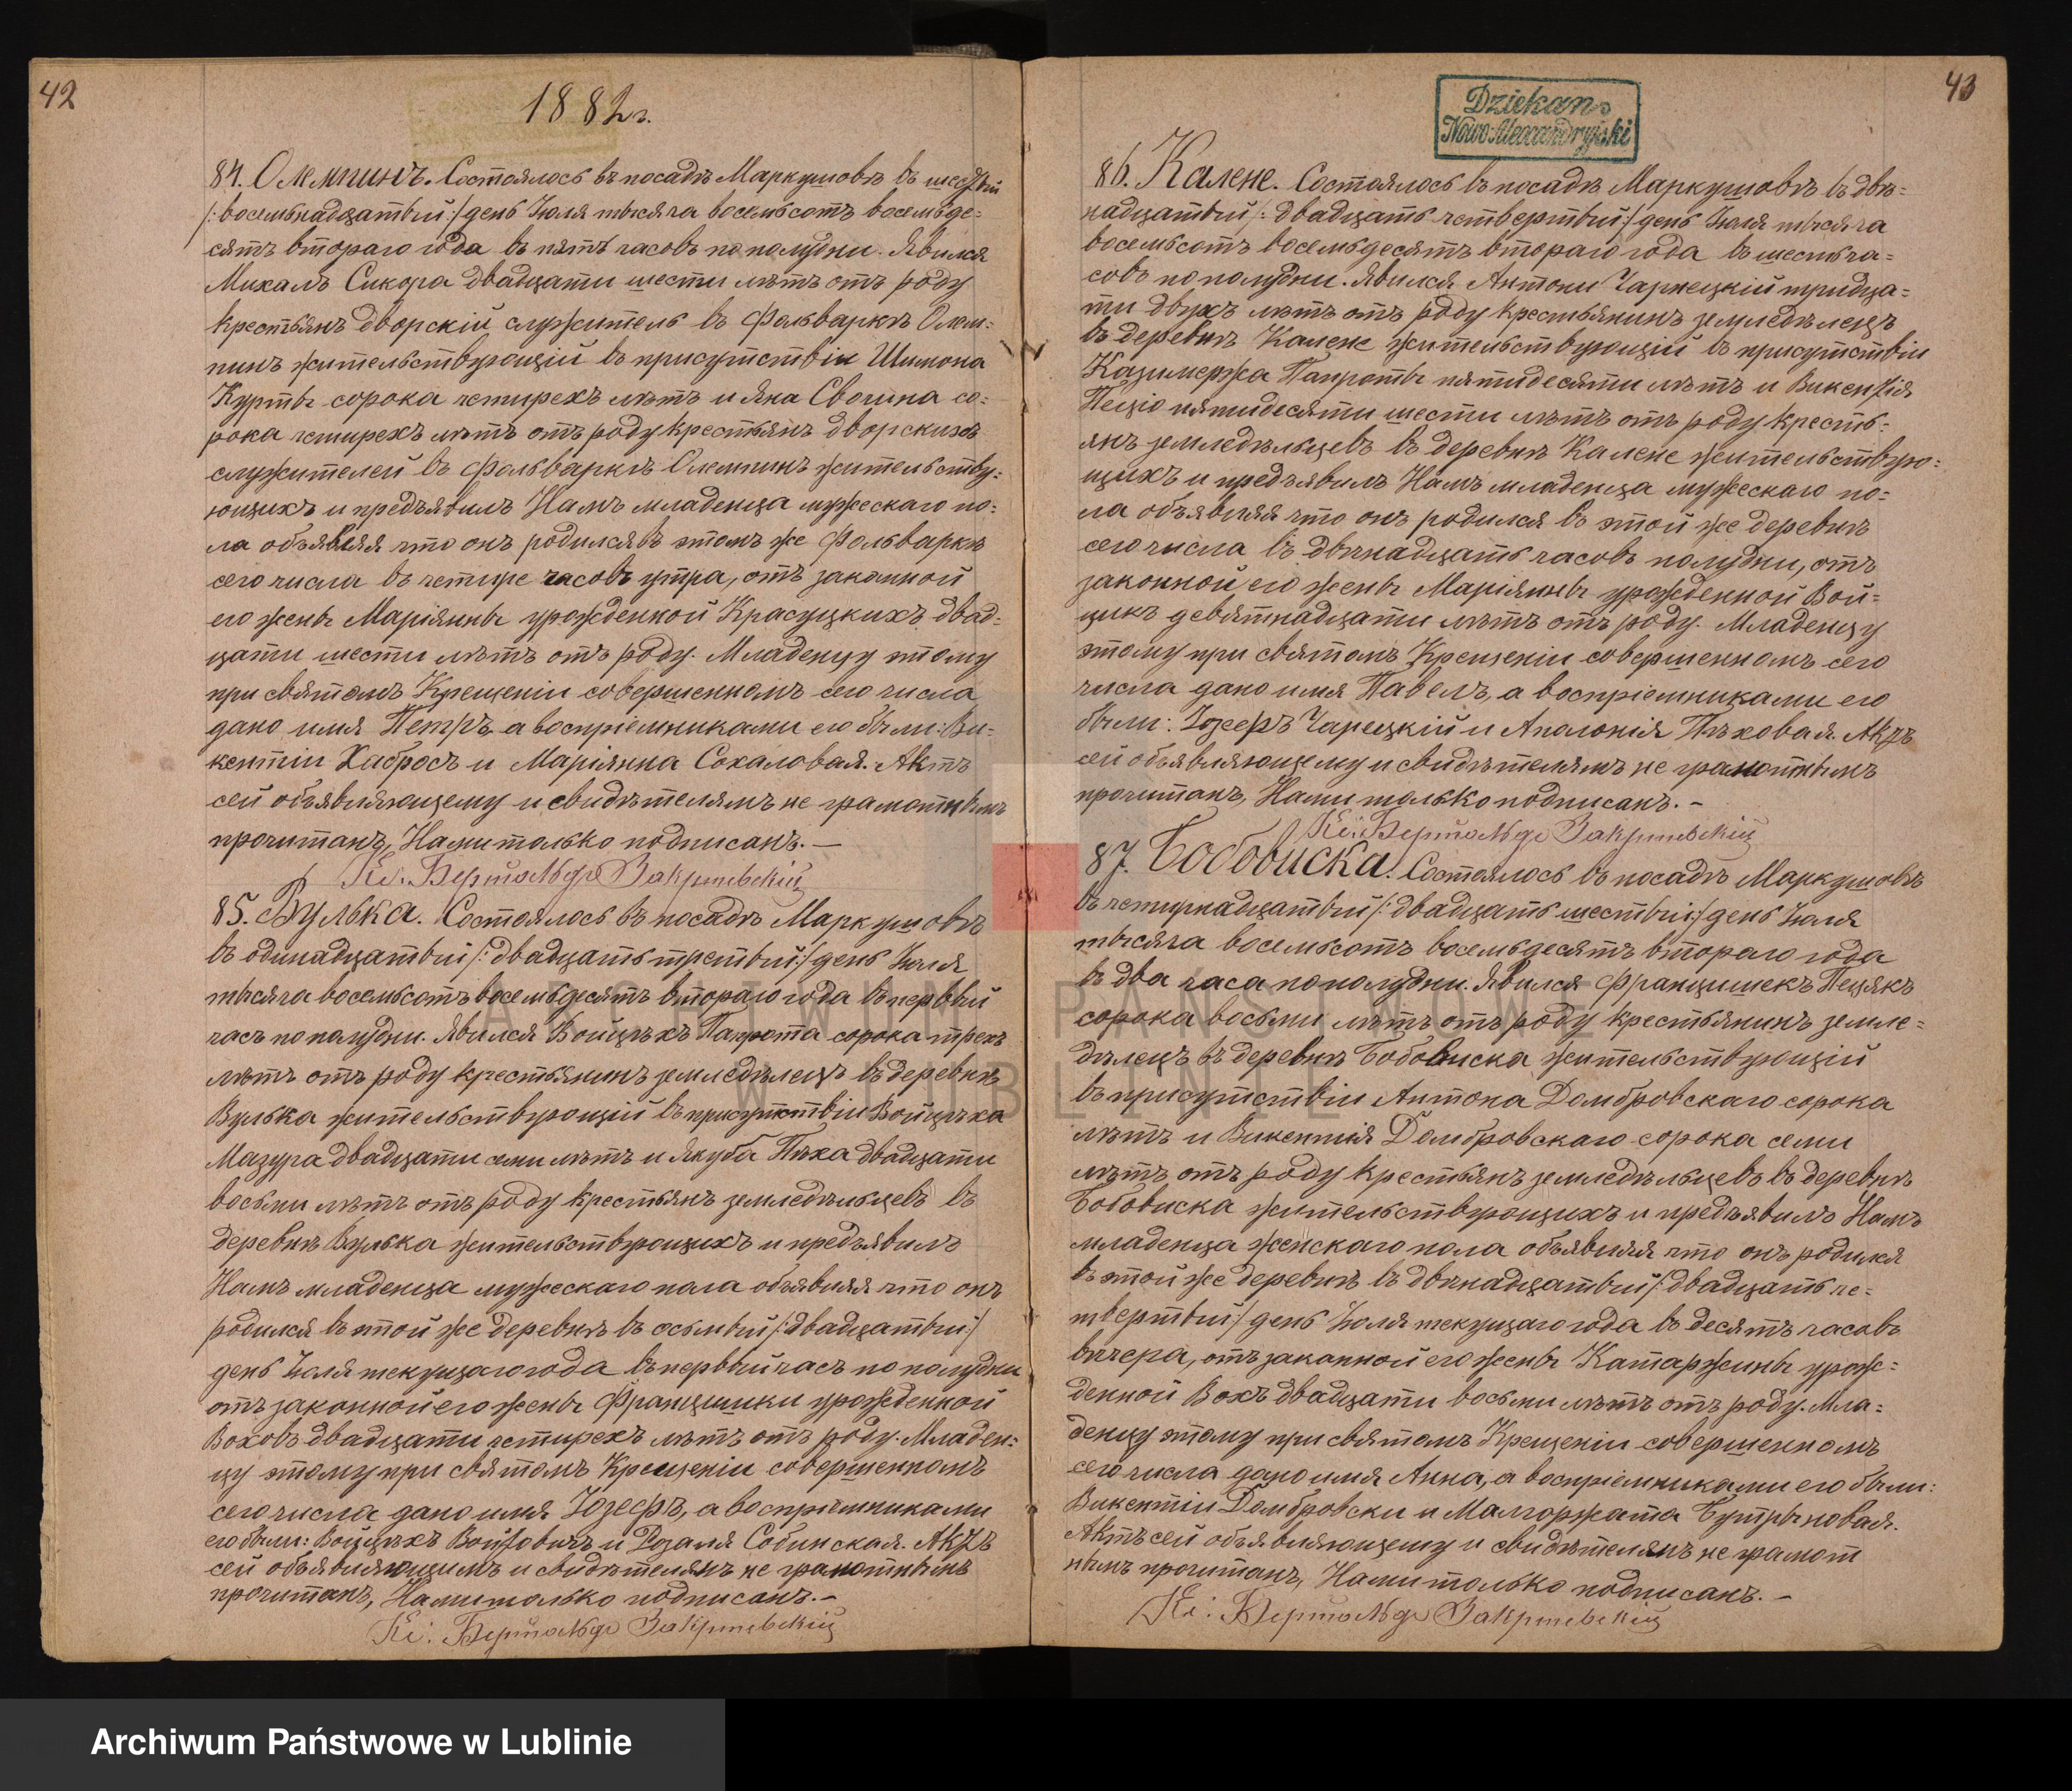 42
1882 г.
84. Олемпинъ. Состоялось въ посадѣ Маркушовѣ въ шестый
/:восемьнадцатый:/ день Іюля тысяча восемьсотъ восемьде-
сятъ втораго года въ пять часовъ по полудни. Явился
Михалъ Сикора двадцати шести лѣтъ отъ роду
крестьянъ дворскій служитель въ Фольваркѣ Олем-
пинъ жительствующій въ присутствіи Шимона
Курты сорока четирехъ лѣтъ и Яна Сьвочина со-
рока четирехъ лѣтъ отъ роду крестьянъ дворскихъ
служителей въ Фольваркѣ Олемпинъ жительству-
ющихъ и предъявилъ Намъ младенца мужескаго по-
ла объявляя что онъ родился въ этомъ же Фольваркѣ
сего числа въ четире часовъ утра, отъ законной
его жены Маріянны урожденной Красуцкихъ двад-
цати шести лѣтъ отъ роду. Младенцу этому
при святомъ Крещеніи совершенномъ сего числа
дано имя Петръ, а воспріемниками его были: Ви-
кентіи Хабросъ и Маріянна Сохаловая. Актъ
сей объявляющему и свидѣтелямъ не грамотнымъ
прочитанъ, Нами только подписанъ. —
Кс: Бертольдъ Закржевскій
85. Вулька. Состоялось въ посадѣ Маркушовѣ
въ одинадцатый /:двадцать третьій:/ день Іюля
тысяча восемьсотъ восемьдесятъ втораго года въ первый
часъ по полудни. Явился Войцѣхъ Папрота сорока трехъ
лѣтъ отъ роду крестьянинъ земледѣлецъ въ деревнѣ
Вулька жительствующій въ присутствіи Войцѣха
Мазура двадцати семи лѣтъ и Якуба Пѣха двадцати
восьми лѣтъ отъ роду крестьянъ земледѣльцевъ въ
деревнѣ Вулька жительствующихъ и предъявилъ
Намъ младенца мужескаго пола объявляя что онъ
родился въ этой же деревнѣ въ осьмый /:двадцатый:/
день Іюля текущаго года въ первый часъ по полудни
отъ законной его жены Францишки урожденной
Воховъ двадцати четирехъ лѣтъ отъ роду. Младен-
цу этому при святомъ Крещеніи совершенномъ
сего числа дано имя Юзефъ, а воспріемниками
его были: Войцѣхъ Войтовичъ и Розаля Собинская. Актъ
сей объявляющимъ и свидѣтелямъ не грамотнымъ
прочитанъ, Нами только подписанъ. —
Кс: Бертольдъ Закржевскій
43
Dziekan
Nowo-Alexandryjski
86. Калене. Состоялось въ посадѣ Маркушовѣ въ двѣ-
надцатый /:двадцать четвертый:/ день Іюля тысяча
восемьсотъ восемьдесятъ втораго года въ шесть ча-
совъ по полудни. Явился Антони Чарнецкій тридца-
ти двухъ лѣтъ отъ роду крестьянинъ земледѣлецъ
въ деревнѣ Калене жительствующій въ присутствіи
Казимержа Папроты пятидесяти лѣтъ и Викентія
Пецьо пятидесяти шести лѣтъ отъ роду кресть-
янъ земледѣльцевъ въ деревнѣ Калене жительствую-
щихъ и предъявилъ Намъ младенца мужескаго по-
ла объявляя что онъ родился въ этой же деревнѣ
сего числа въ двѣнадцать часовъ полудни, отъ
законной его жены Маріянны урожденной Вой-
цикъ девятнадцати лѣтъ отъ роду. Младенцу
этому при святомъ Крещеніи совершенномъ сего
числа дано имя Павелъ, а воспріемниками его
были: Юзефъ Чарецкій и Аполонія Пѣховая. Актъ
сей объявляющему и свидѣтелямъ не грамотнымъ
прочитанъ, Нами только подписанъ. —
Кс: Бертольдъ Закржевскій
87. Бобовиска. Состоялось въ посадѣ Маркушовѣ
въ четирнадцатый /:двадцать шестый:/ день Іюля
тысяча восемьсотъ восемьдесятъ втораго года
въ два часа по полудни. Явился Францишекъ Пецякъ
сорока восьми лѣтъ отъ роду крестьянинъ земле-
дѣлецъ въ деревнѣ Бобовиска жительствующій
въ присутствіи Антона Домбровскаго сорока
лѣтъ и Викентія Домбровскаго сорока семи
лѣтъ отъ роду крестьянъ земледѣльцевъ въ деревнѣ
Бобовиска жительствующихъ и предъявилъ Намъ
младенца женскаго пола объявляя что онъ родился
въ этой же деревнѣ въ двѣнадцатый /:двадцать че-
твертый:/ день Іюля текущаго года въ десять часовъ
вѣчера, отъ законной его жены Катаржины урож-
денной Вохъ двадцати восьми лѣтъ отъ роду. Мла-
денцу этому при святомъ Крещеніи совершенномъ
сего числа дано имя Анна, а воспріемниками его были:
Викентіи Домбровски и Малгоржата Бутрыновая.
Актъ сей объявляющему и свидѣтелямъ не грамот
нымъ прочитанъ, Нами только подписанъ. —
Кс: Бертольдъ Закржевскій
ARCHIWUM PAŃSTWOWE
W LUBLINIE
Archiwum Państwowe w Lublinie